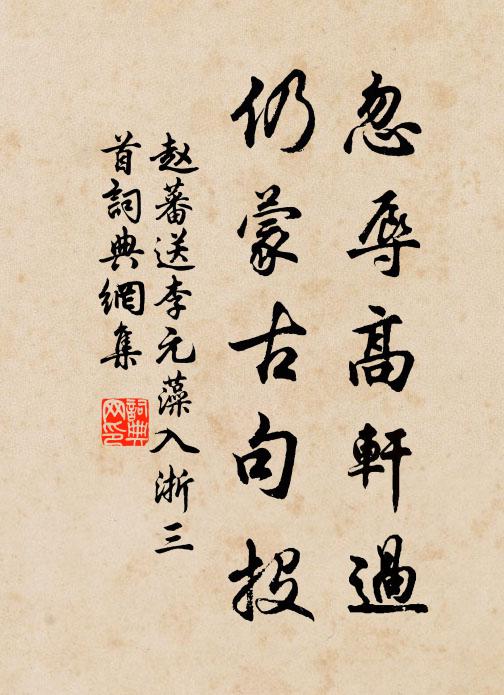 忽辱高軒過
仍蒙古句投
赵蕃送李元藻入浙三
首詞典網集
詞典
网印